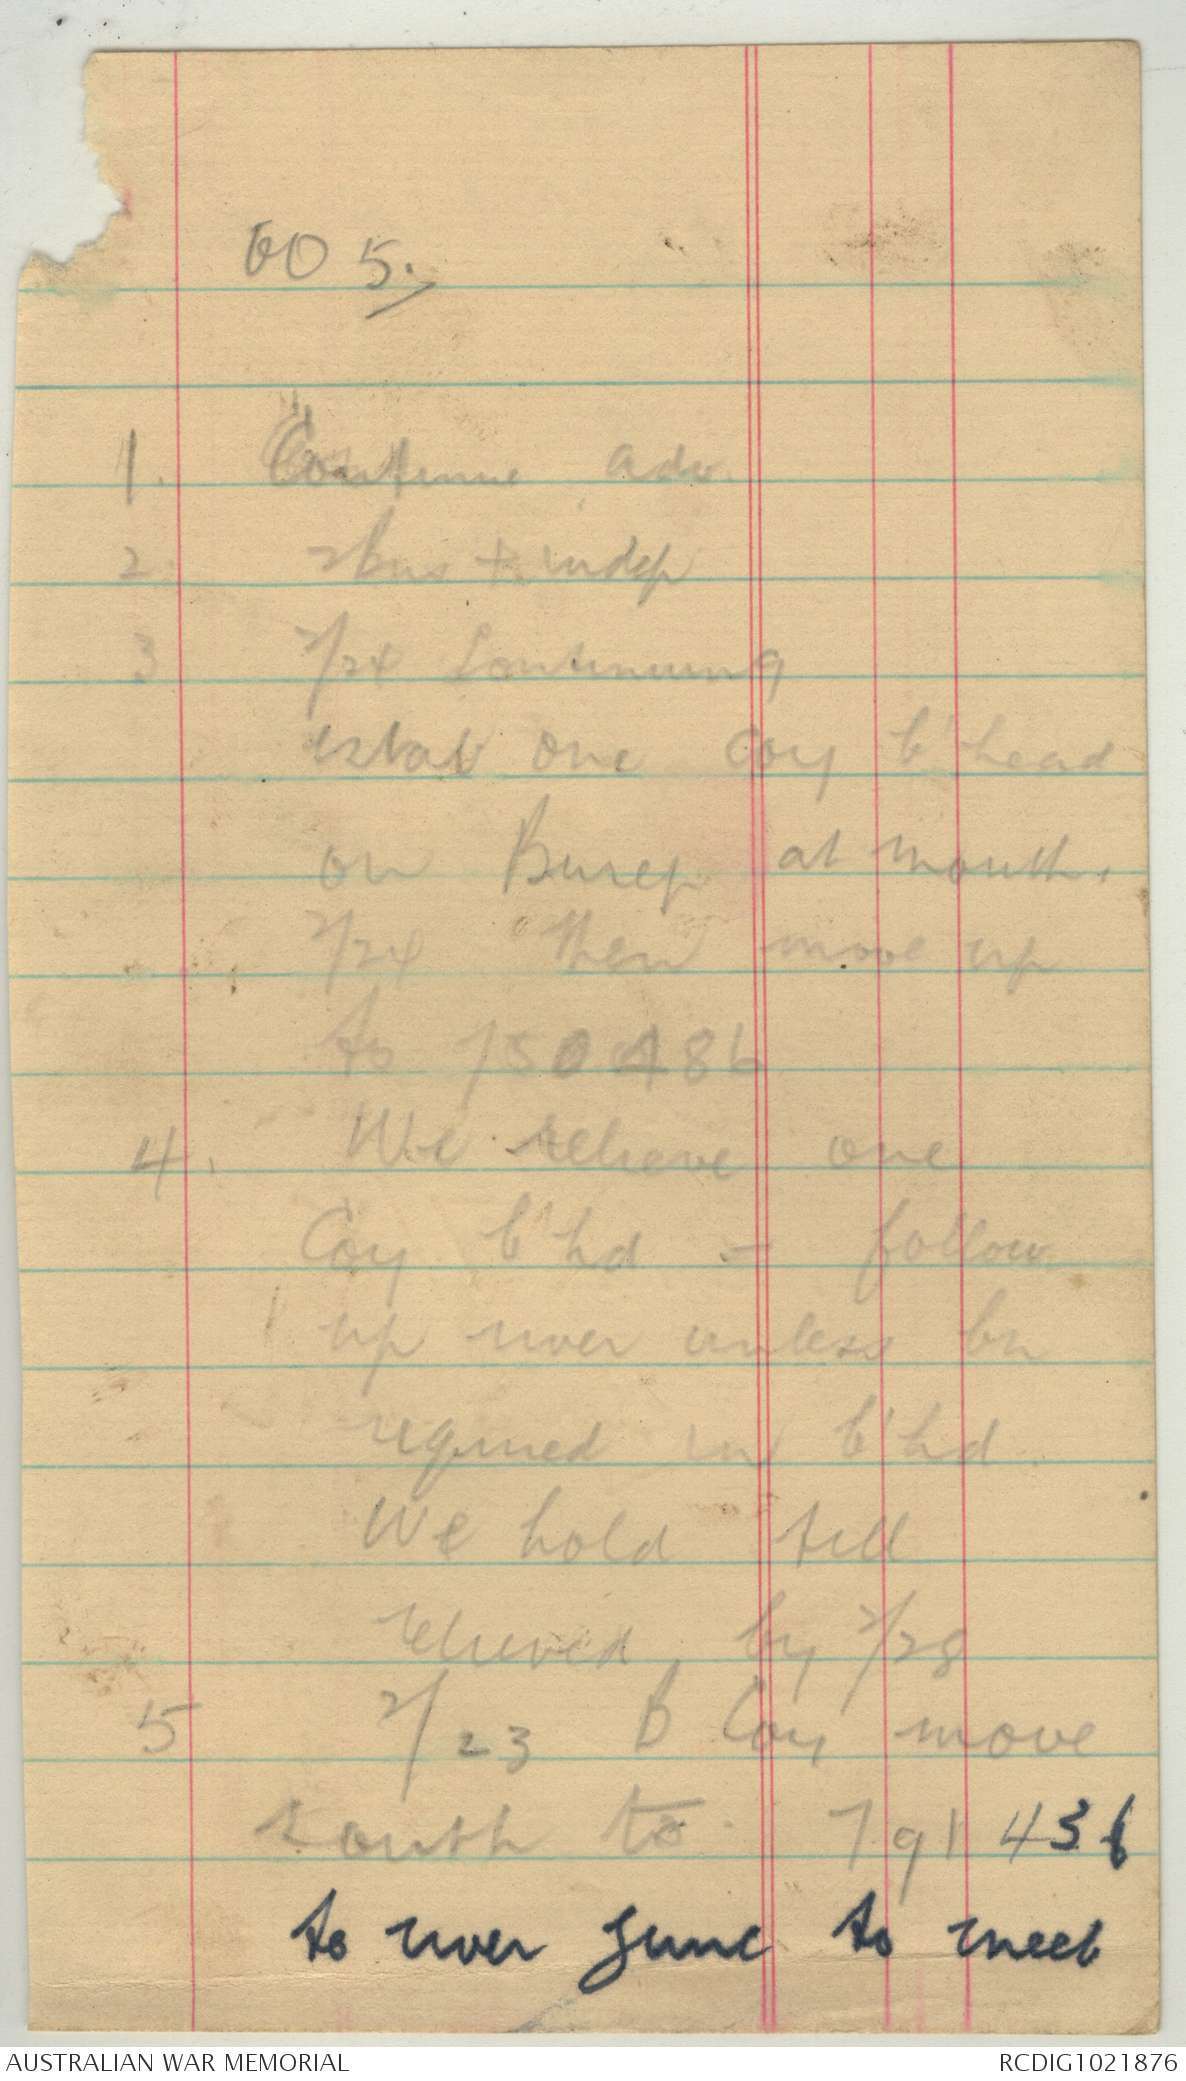 OO 5.
1. Continue adv.
2. 2 bns + indep
3 2/24 Continuing
estab one coy b'head
on Burep at mouth.
2/24 then move up
to 750486
4. We relieve one
Coy b'hd - follow
up river unless bn
required in b'hd.
We hold till
relieved by 2/28
5 2/23 B Coy move
south to 791436
to river junc to meet
AUSTRALIAN WAR MEMORIAL
RCDIG1021876